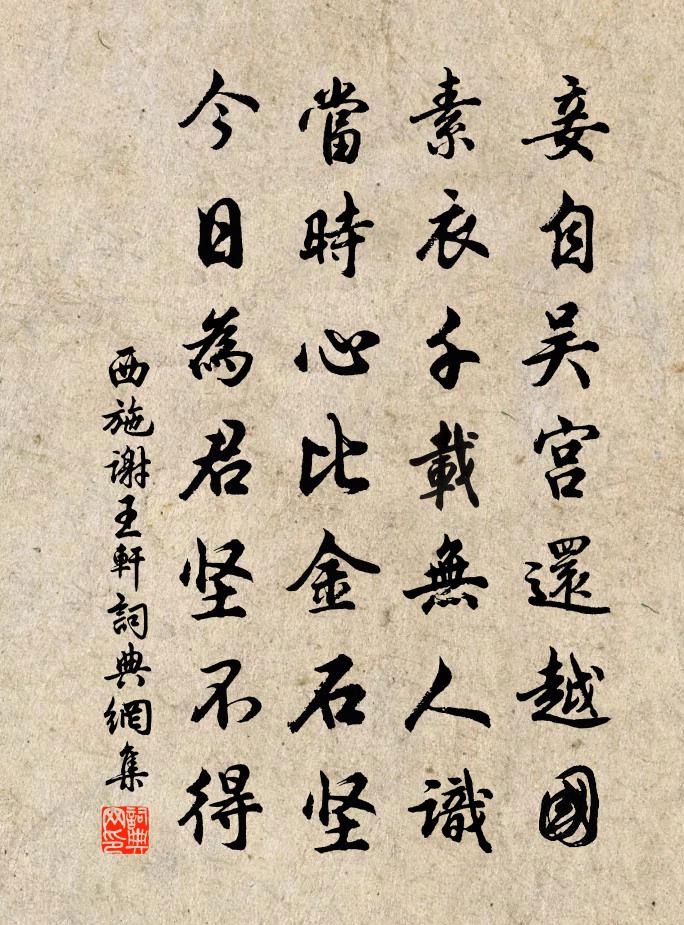 妾自吴宫還越國
素衣千載無人識
當時心比金石坚
今日為君坚不得
西施謝王軒詞典網集
詞典
网印